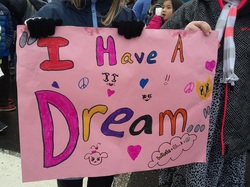 "I Have A
!!
Dream...